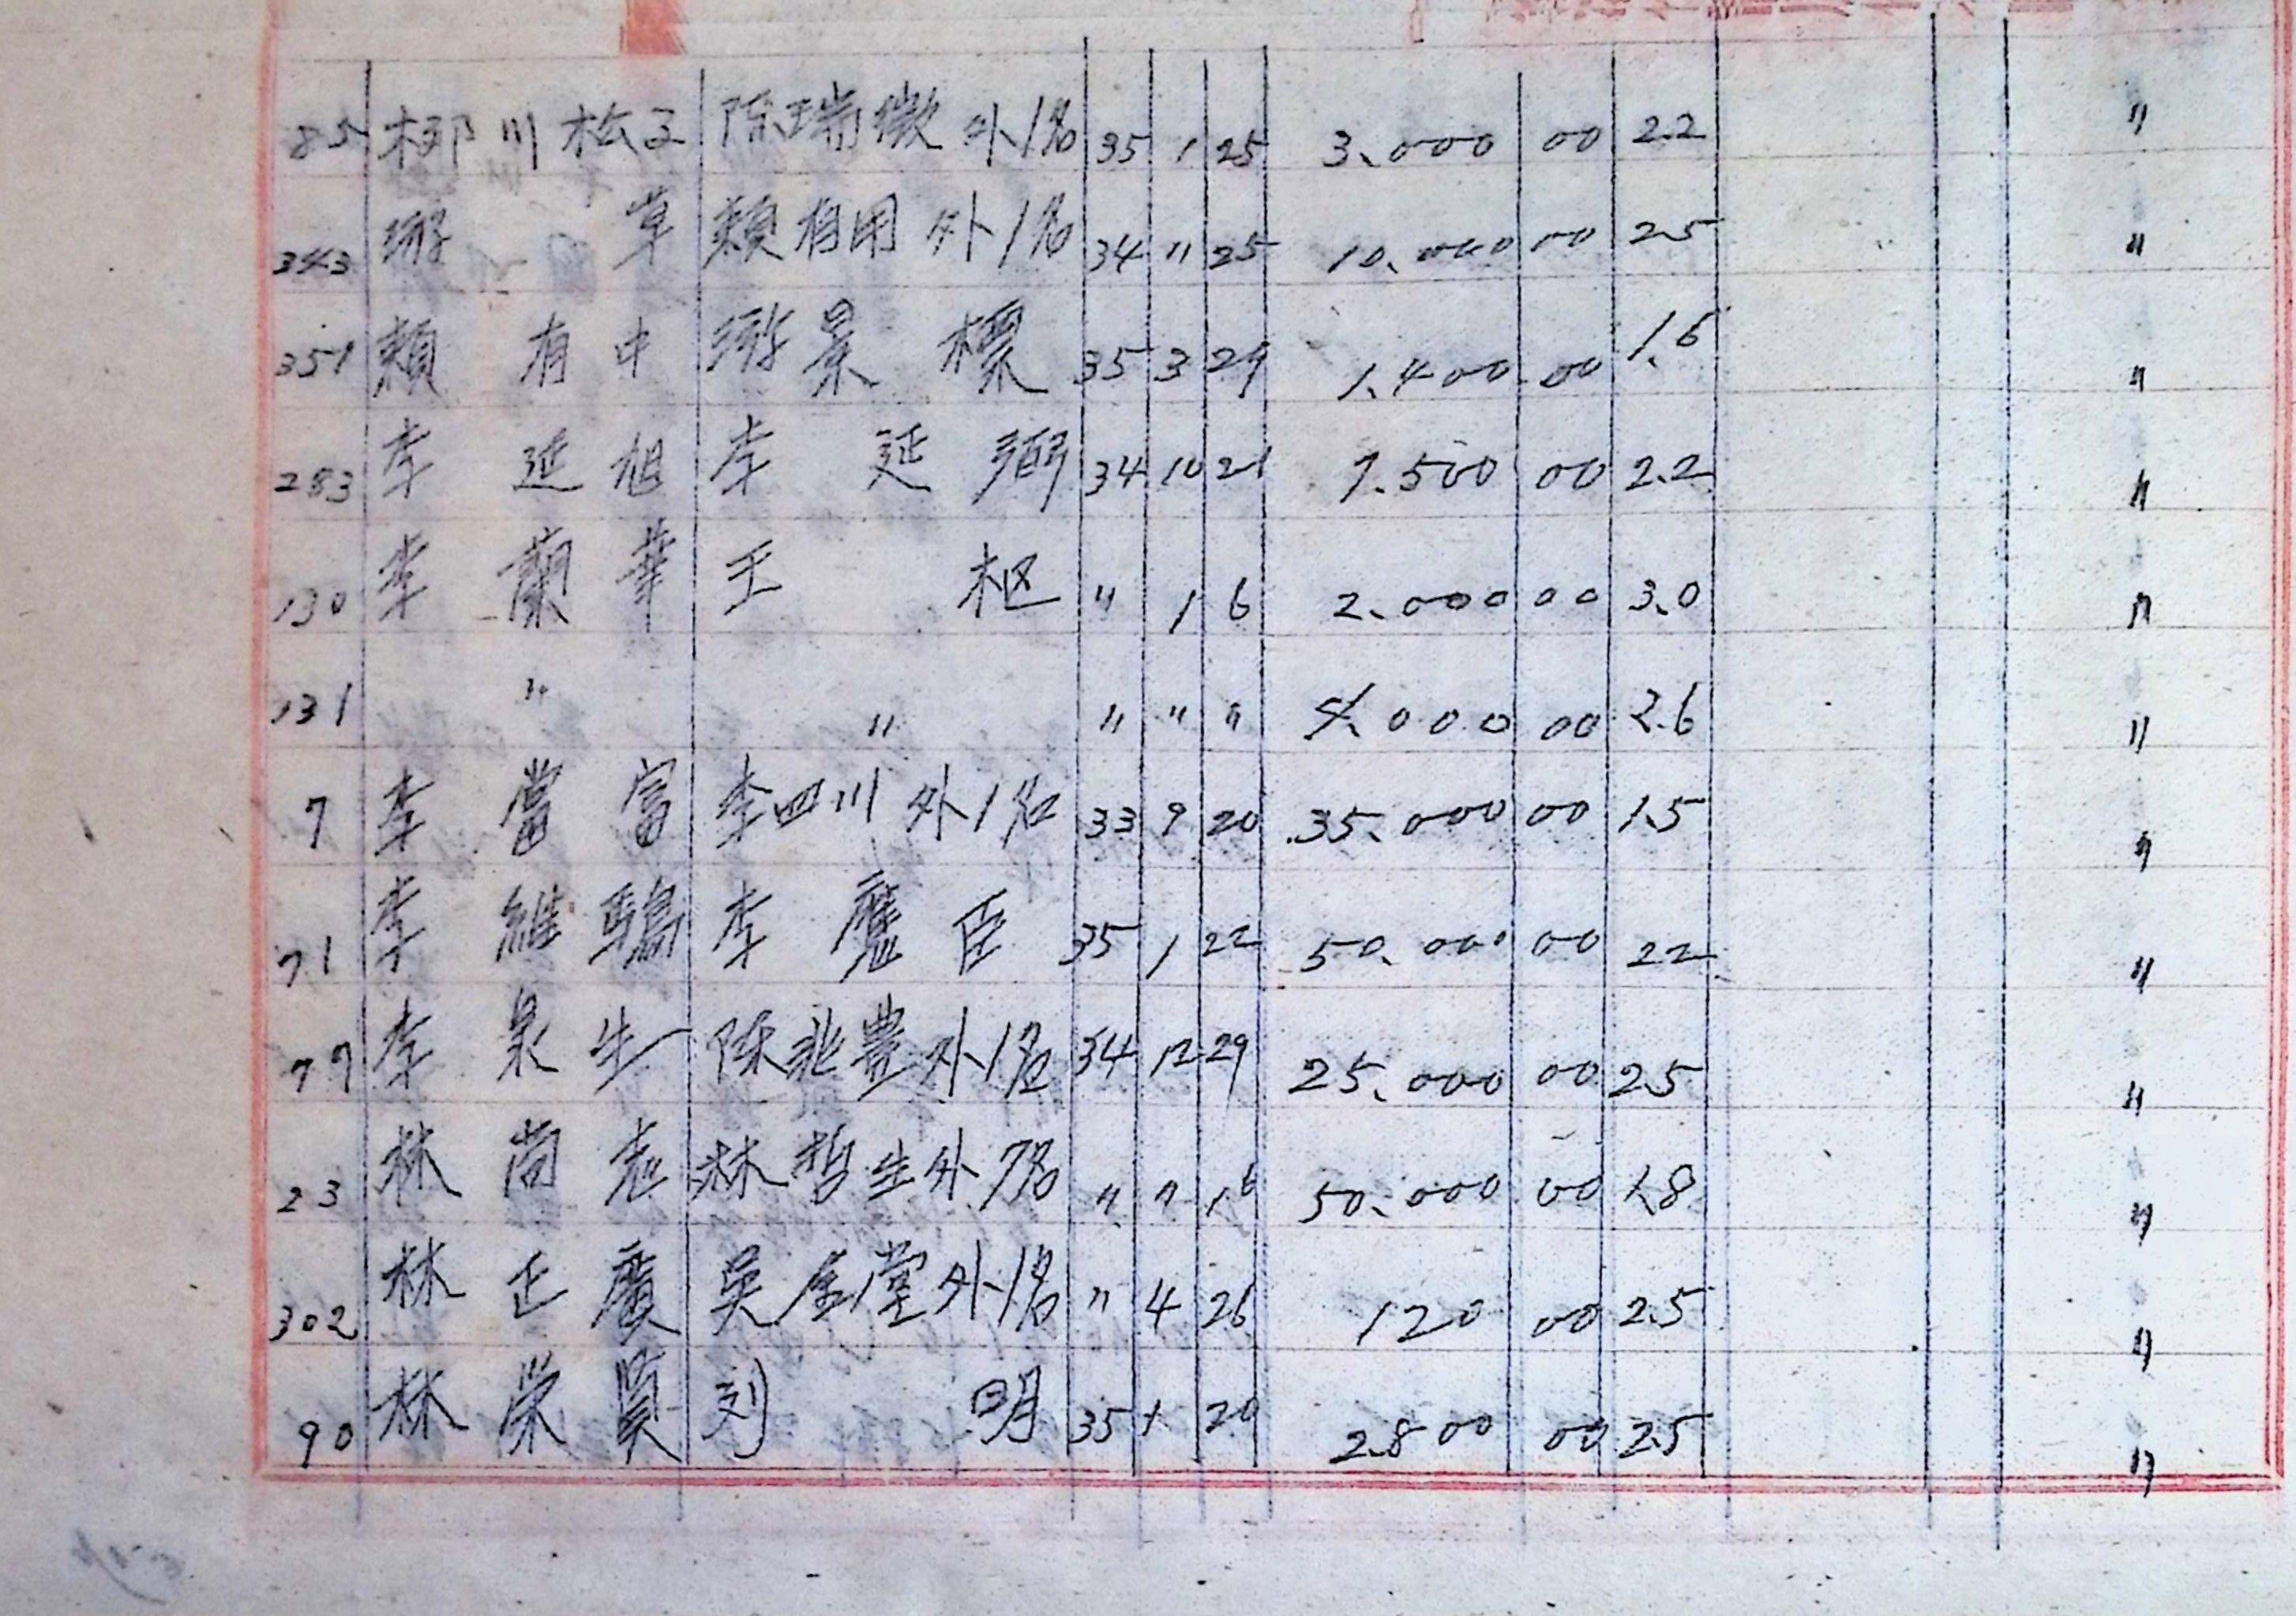 85 柳川松子 陳瑞徵 外1名 35 1 25 3,000 00 2.2 〃
343 游草 賴有用 外1名 34 〃 25 10,000 00 2.5 〃
351 賴有中 游景標 35 3 29 1,400 00 1.6 〃
283 李延旭 李延弼 34 10 21 7,500 00 2.2 〃
130 李蘭華 王枢 〃 1 6 2,000 00 3.0 〃
131 〃 〃 〃 〃 〃 4,000 00 2.6 〃
7 李當富 李四川 外1名 33 9 20 35,000 00 1.5 〃
71 李維驕 李應臣 35 1 22 50,000 00 2.2 〃
77 李泉生 陳兆豊 外1名 34 12 29 25,000 00 2.5 〃
23 林尚志 林哲生 外7名 〃 〃 16 50,000 00 1.8 〃
302 林正廣 吳金堂 外1名 〃 4 26 120 00 2.5 〃
90 林榮貴 刘明 35 1 20 2,800 00 2.5 〃